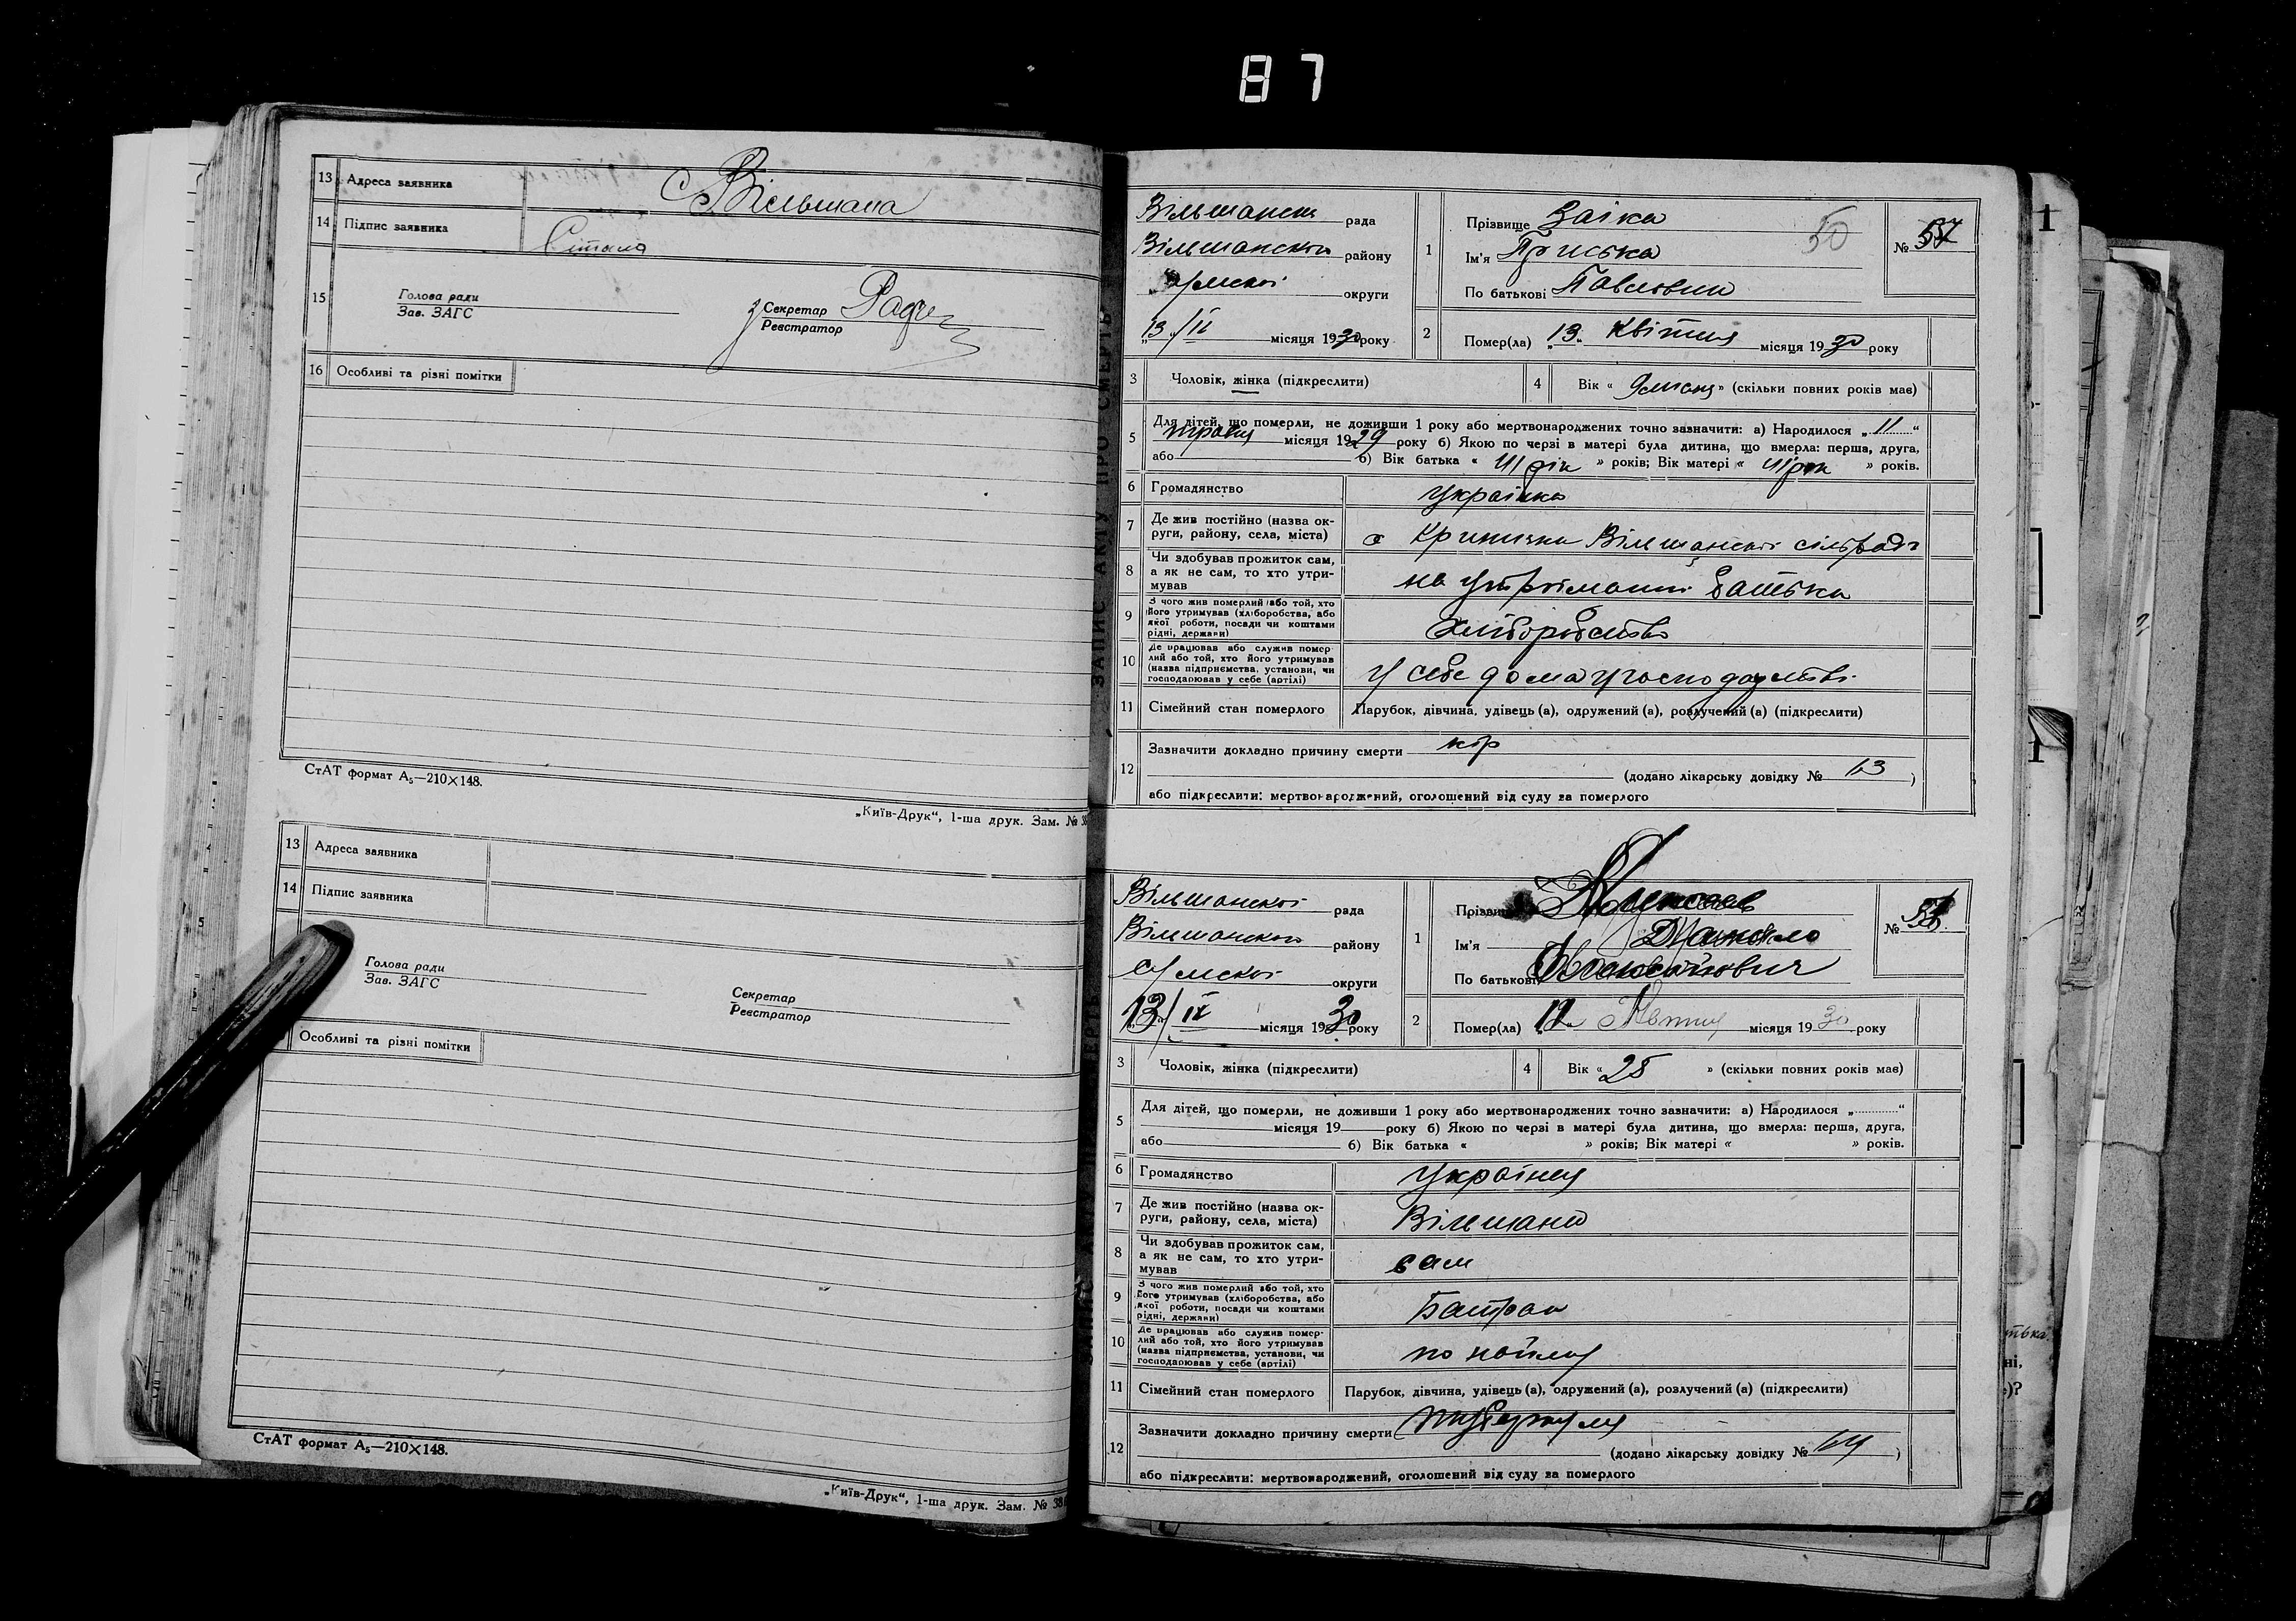 87
13 Адреса заявника с Вільшана
14 Підпис заявника
15 Голова ради
Зав. ЗАГС
Секретар
Реєстратор
16 Особливі та різні помітки
СтАТ формат А₅—210×148.
„Київ-Друк“, 1-ша друк. Зам. № 38
13 Адреса заявника
14 Підпис заявника
Голова ради
Зав. ЗАГС
Секретар
Реєстратор
Особливі та різні помітки
СтАТ формат А₅—210×148.
„Київ-Друк“, 1-ша друк. Зам. № 38
ЗАПИС АКТУ ПРО СМЕРТЬ
Вільшанська рада
Вільшанського району
Сумської округи
„13“/IV місяця 1930 року
1 Прізвище Заїка
50
№ 57
Ім'я Приська
По батькові Павловна
2 Помер(ла) „13“ Квітня місяця 1930 року
3 Чоловік, жінка (підкреслити)
4 Вік « » (скільки повних років має)
5 Для дітей, що померли, не доживши 1 року або мертвонароджених точно зазначити: а) Народилося „11“
травня місяця 1929 року б) Якою по черзі в матері була дитина, що вмерла: перша, друга,
або б) Вік батька « 41 рік » років; Вік матері « 41 рік » років.
6 Громадянство українка
7 Де жив постійно (назва округи, району, села, міста) с Кринична Вільшанської сільради
8 Чи здобував прожиток сам, а як не сам, то хто утримував на утриманні батька
9 З чого жив померлий або той, хто його утримував (хліборобства, або якої роботи, посади чи коштами рідні, держави) Хліборобство
10 Де працював або служив померлий або той, хто його утримував (назва підприємства, установи, чи господарював у себе (артілі) у себе дома у господарстві
11 Сімейний стан померлого Парубок, дівчина, удівець (а), одружений (а), розлучений (а) (підкреслити)
12 Зазначити докладно причину смерти кір
(додано лікарську довідку № 63 )
або підкреслити: мертвонароджений, оголошений від суду за померлого
Вільшанської рада
Вільшанського району
Сумської округи
„13“/IV місяця 1930 року
1 Прізвище
№
Ім'я Данило
По батькові
2 Помер(ла) „12“ Квітня місяця 1930 року
3 Чоловік, жінка (підкреслити)
4 Вік « 25 » (скільки повних років має)
5 Для дітей, що померли, не доживши 1 року або мертвонароджених точно зазначити: а) Народилося „ “
місяця 19 року б) Якою по черзі в матері була дитина, що вмерла: перша, друга,
або б) Вік батька « » років; Вік матері « » років.
6 Громадянство українець
7 Де жив постійно (назва округи, району, села, міста) Вільшана
8 Чи здобував прожиток сам, а як не сам, то хто утримував сам
9 З чого жив померлий або той, хто його утримував (хліборобства, або якої роботи, посади чи коштами рідні, держави) Батрак
10 Де працював або служив померлий або той, хто його утримував (назва підприємства, установи, чи господарював у себе (артілі) по найму
11 Сімейний стан померлого Парубок, дівчина, удівець (а), одружений (а), розлучений (а) (підкреслити)
12 Зазначити докладно причину смерти туберкульоз
(додано лікарську довідку № 64 )
або підкреслити: мертвонароджений, оголошений від суду за померлого